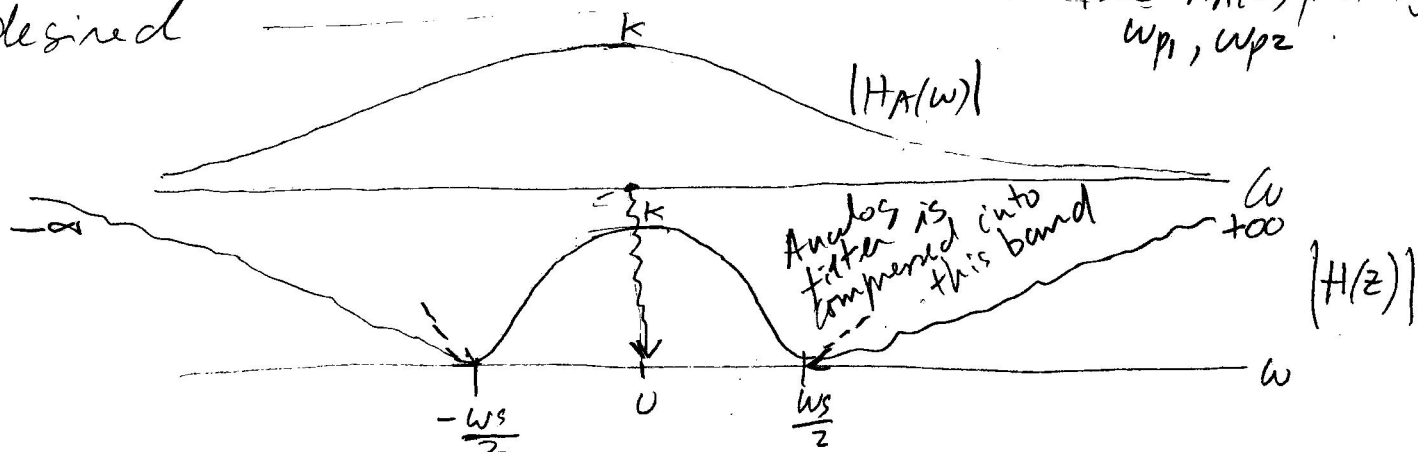 desired
ωp1, ωp2.
K
|HA(ω)|
ω
-∞
+∞
K
Analog
filter is
compressed into
this band
|H(z)|
ω
-ωs/2
0
ωs/2